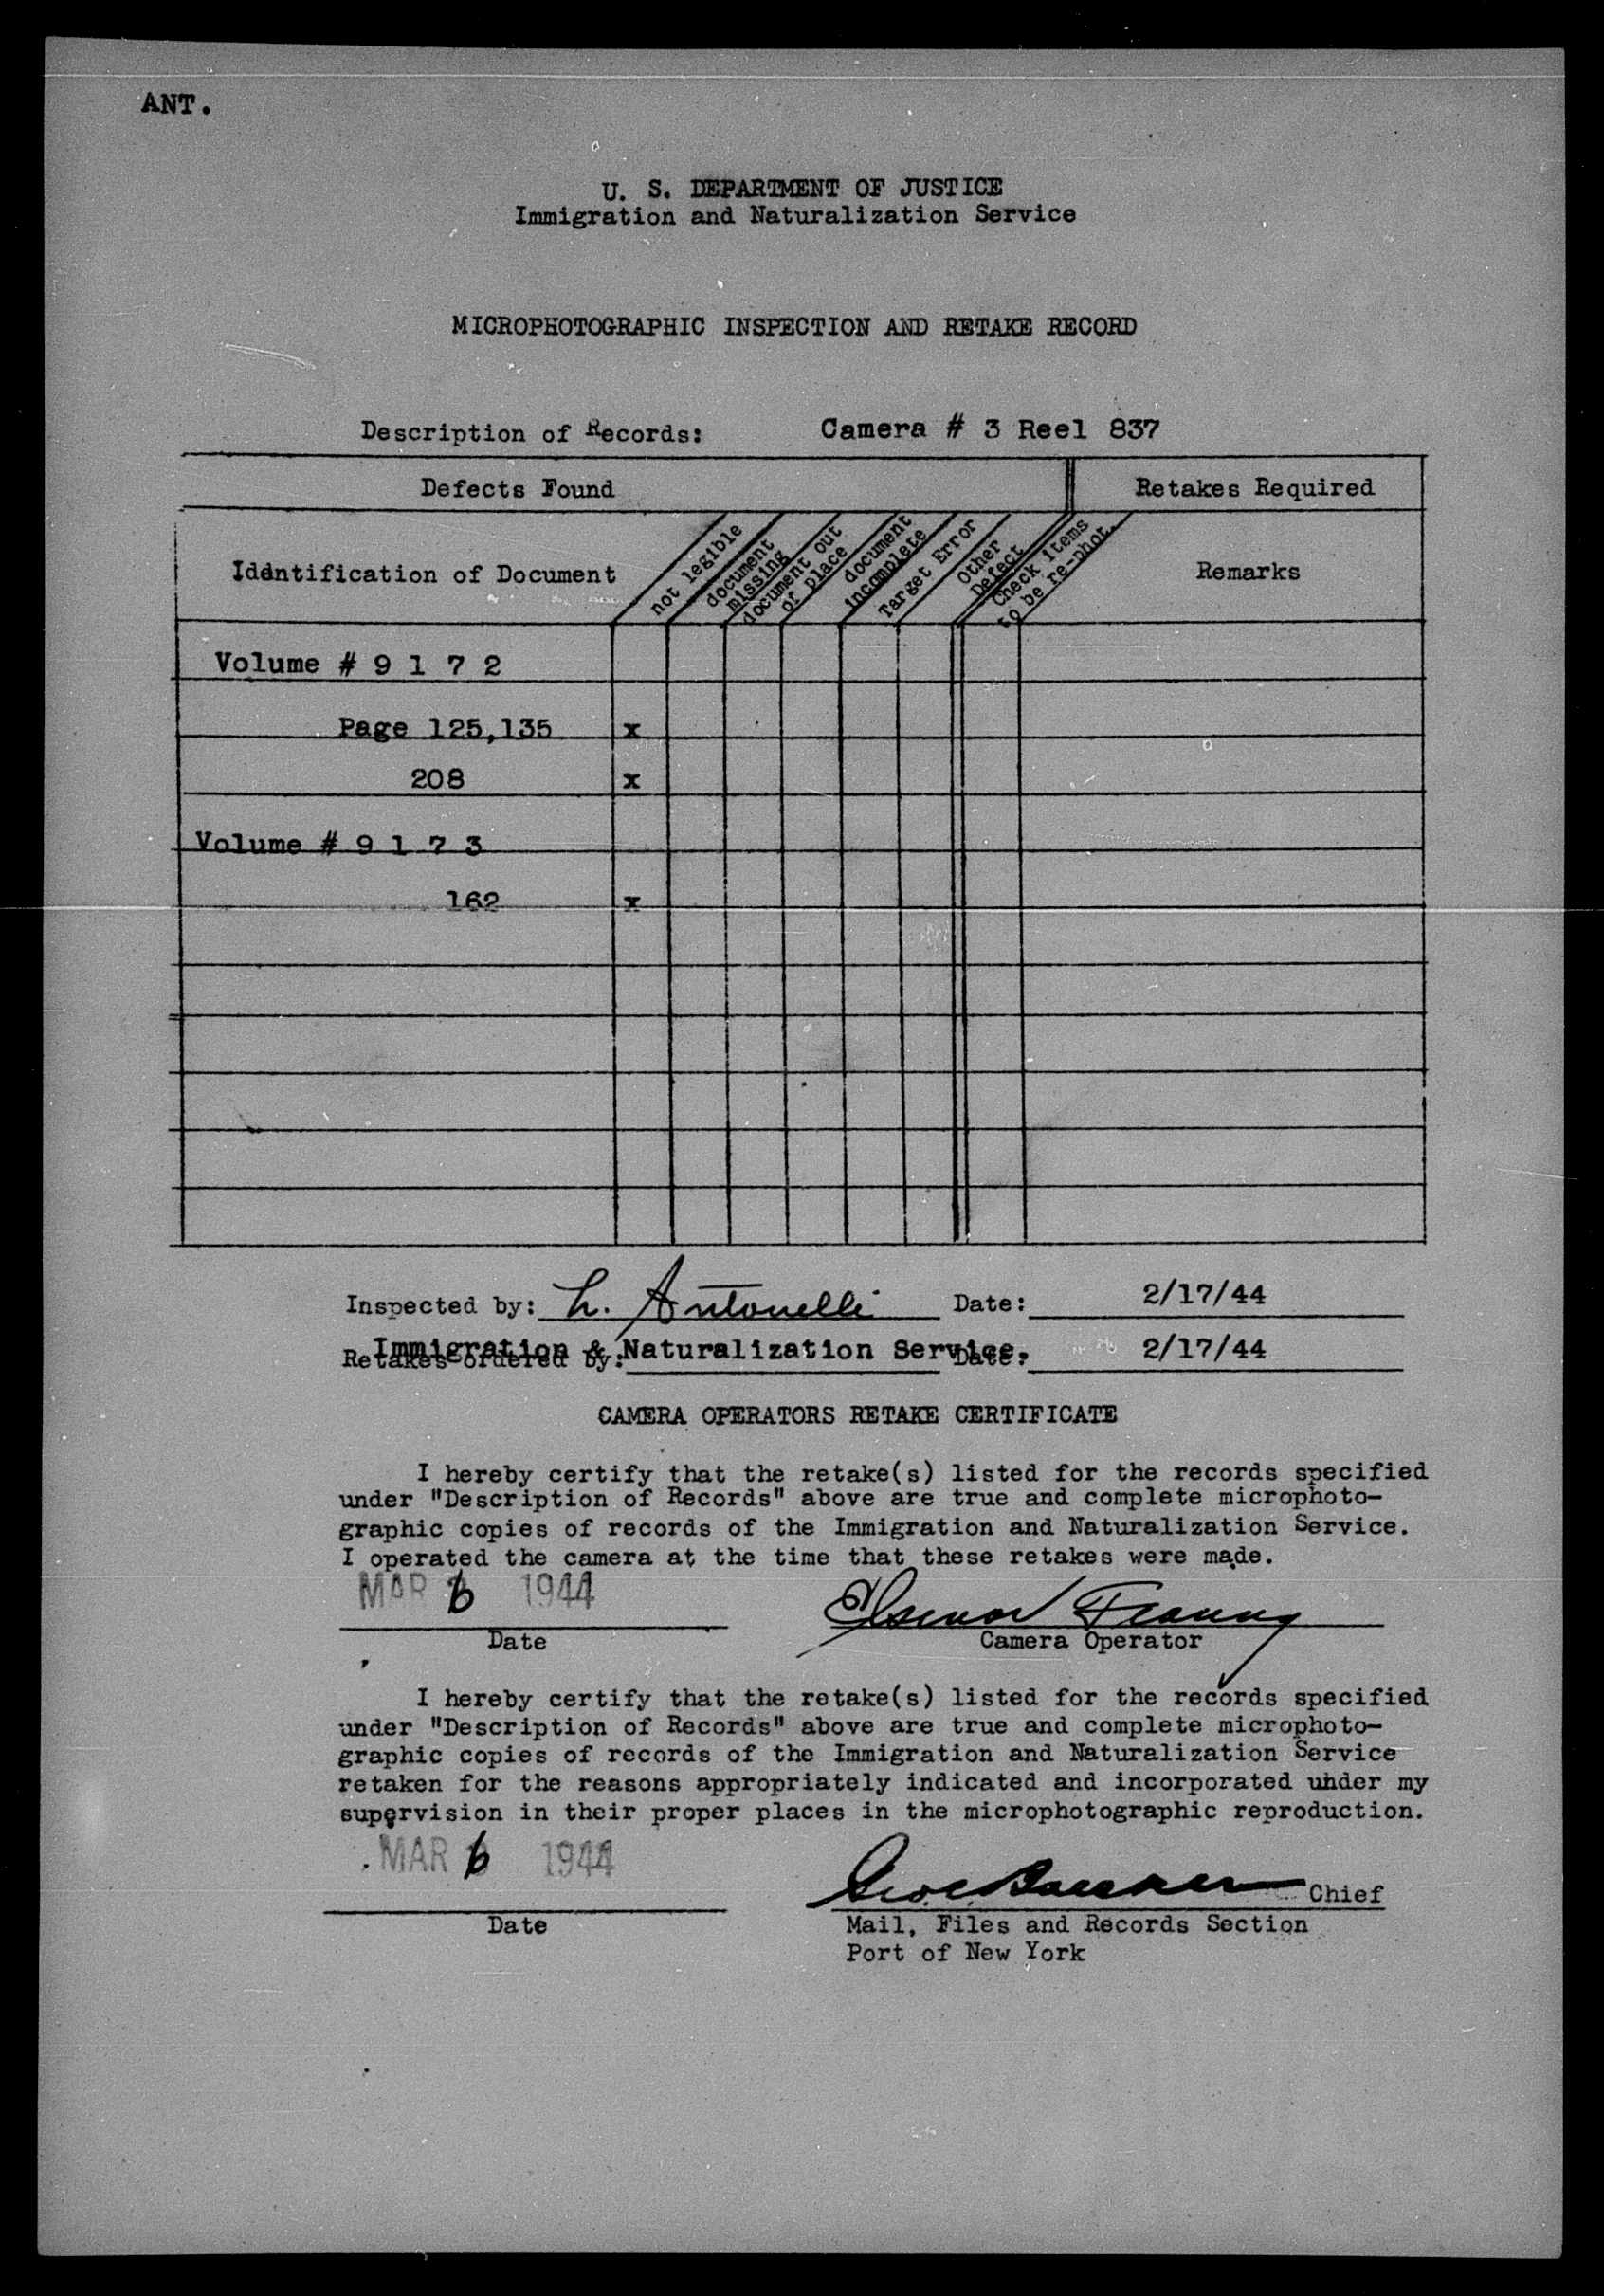 ANT.
U. S. DEPARTMENT OF JUSTICE
Immigration and Naturalization Service
MICROPHOTOGRAPHIC INSPECTION AND RETAKE RECORD
Description of Records: Camera # 3 Reel 837
Defects Found Retakes Required
Identification of Document
not legible
document missing
document out of place
document incomplete
Target Error
Other Defect
Check items to be re-phot.
Remarks
Volume # 9 1 7 2
Page 125,135 x
208 x
Volume # 9 1 7 3
162 x
Inspected by: L. Antonelli Date: 2/17/44
Retakes ordered by: Immigration & Naturalization Service. Date: 2/17/44
CAMERA OPERATORS RETAKE CERTIFICATE
I hereby certify that the retake(s) listed for the records specified
under "Description of Records" above are true and complete microphoto-
graphic copies of records of the Immigration and Naturalization Service.
I operated the camera at the time that these retakes were made.
MAR 6 1944
Date Camera Operator
I hereby certify that the retake(s) listed for the records specified
under "Description of Records" above are true and complete microphoto-
graphic copies of records of the Immigration and Naturalization Service
retaken for the reasons appropriately indicated and incorporated under my
supervision in their proper places in the microphotographic reproduction.
MAR 6 1944
Chief
Date Mail, Files and Records Section
Port of New York